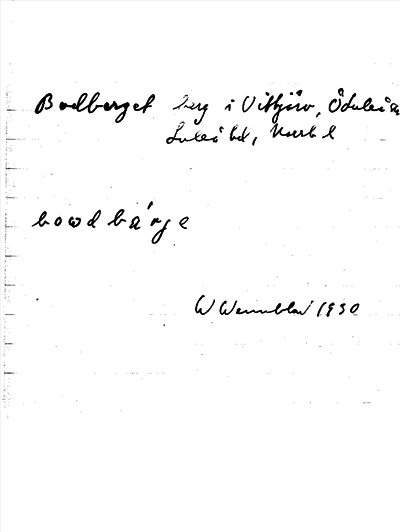 Bodberget berg i Vitfjärv, Öluleå sn
Luleå bd, Norrb l
bowdbárje
W Wennblad 1930